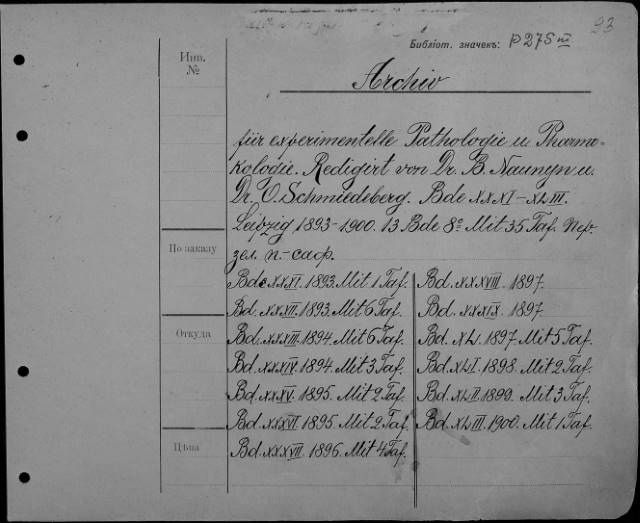 23
Библіот. значекъ: P275 III
Инв.
№
Archiv
für experimentelle Pathologie u. Pharma-
kologie. Redigirt von Dr. B. Naunyn u.
Dr. O. Schmiedeberg. Bde XXXI-XLIII.
Leipzig 1893-1900. 13 Bde 8° Mit 35 Taf. Пер.
зел. п.-саф.
По заказу
Откуда
Цѣна
Bde XXXI. 1893. Mit 1 Taf.
Bd. XXXII. 1893. Mit 6 Taf.
Bd. XXXIII. 1894. Mit 6 Taf.
Bd. XXXIV. 1894. Mit 3 Taf.
Bd. XXXV. 1895. Mit 2 Taf.
Bd. XXXVI. 1895. Mit 2 Taf.
Bd. XXXVII. 1896. Mit 4 Taf.
Bd. XXXVIII. 1897.
Bd. XXXIX. 1897.
Bd. XL. 1897. Mit 5 Taf.
Bd. XLI. 1898. Mit 2 Taf.
Bd. XLII. 1899. Mit 3 Taf.
Bd. XLIII. 1900. Mit 1 Taf.